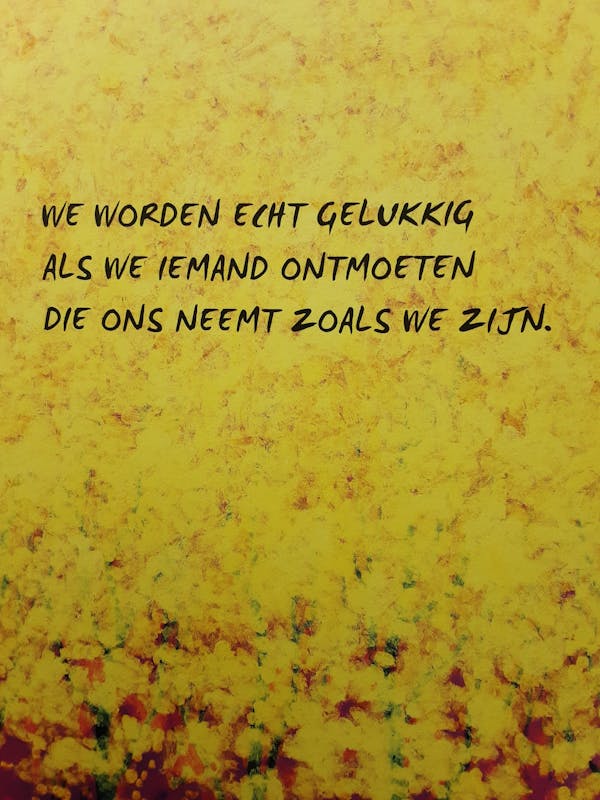 WE WORDEN ECHT GELUKKIG
ALS WE IEMAND ONTMOETEN
DIE ONS NEEMT ZOALS WE ZIJN.